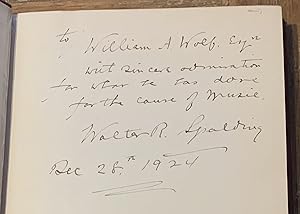 to William A Wolf. Esqre
with sincere admiration
for what he has done
for the cause of Music.
Walter R. Spalding
Dec 28.th 1924